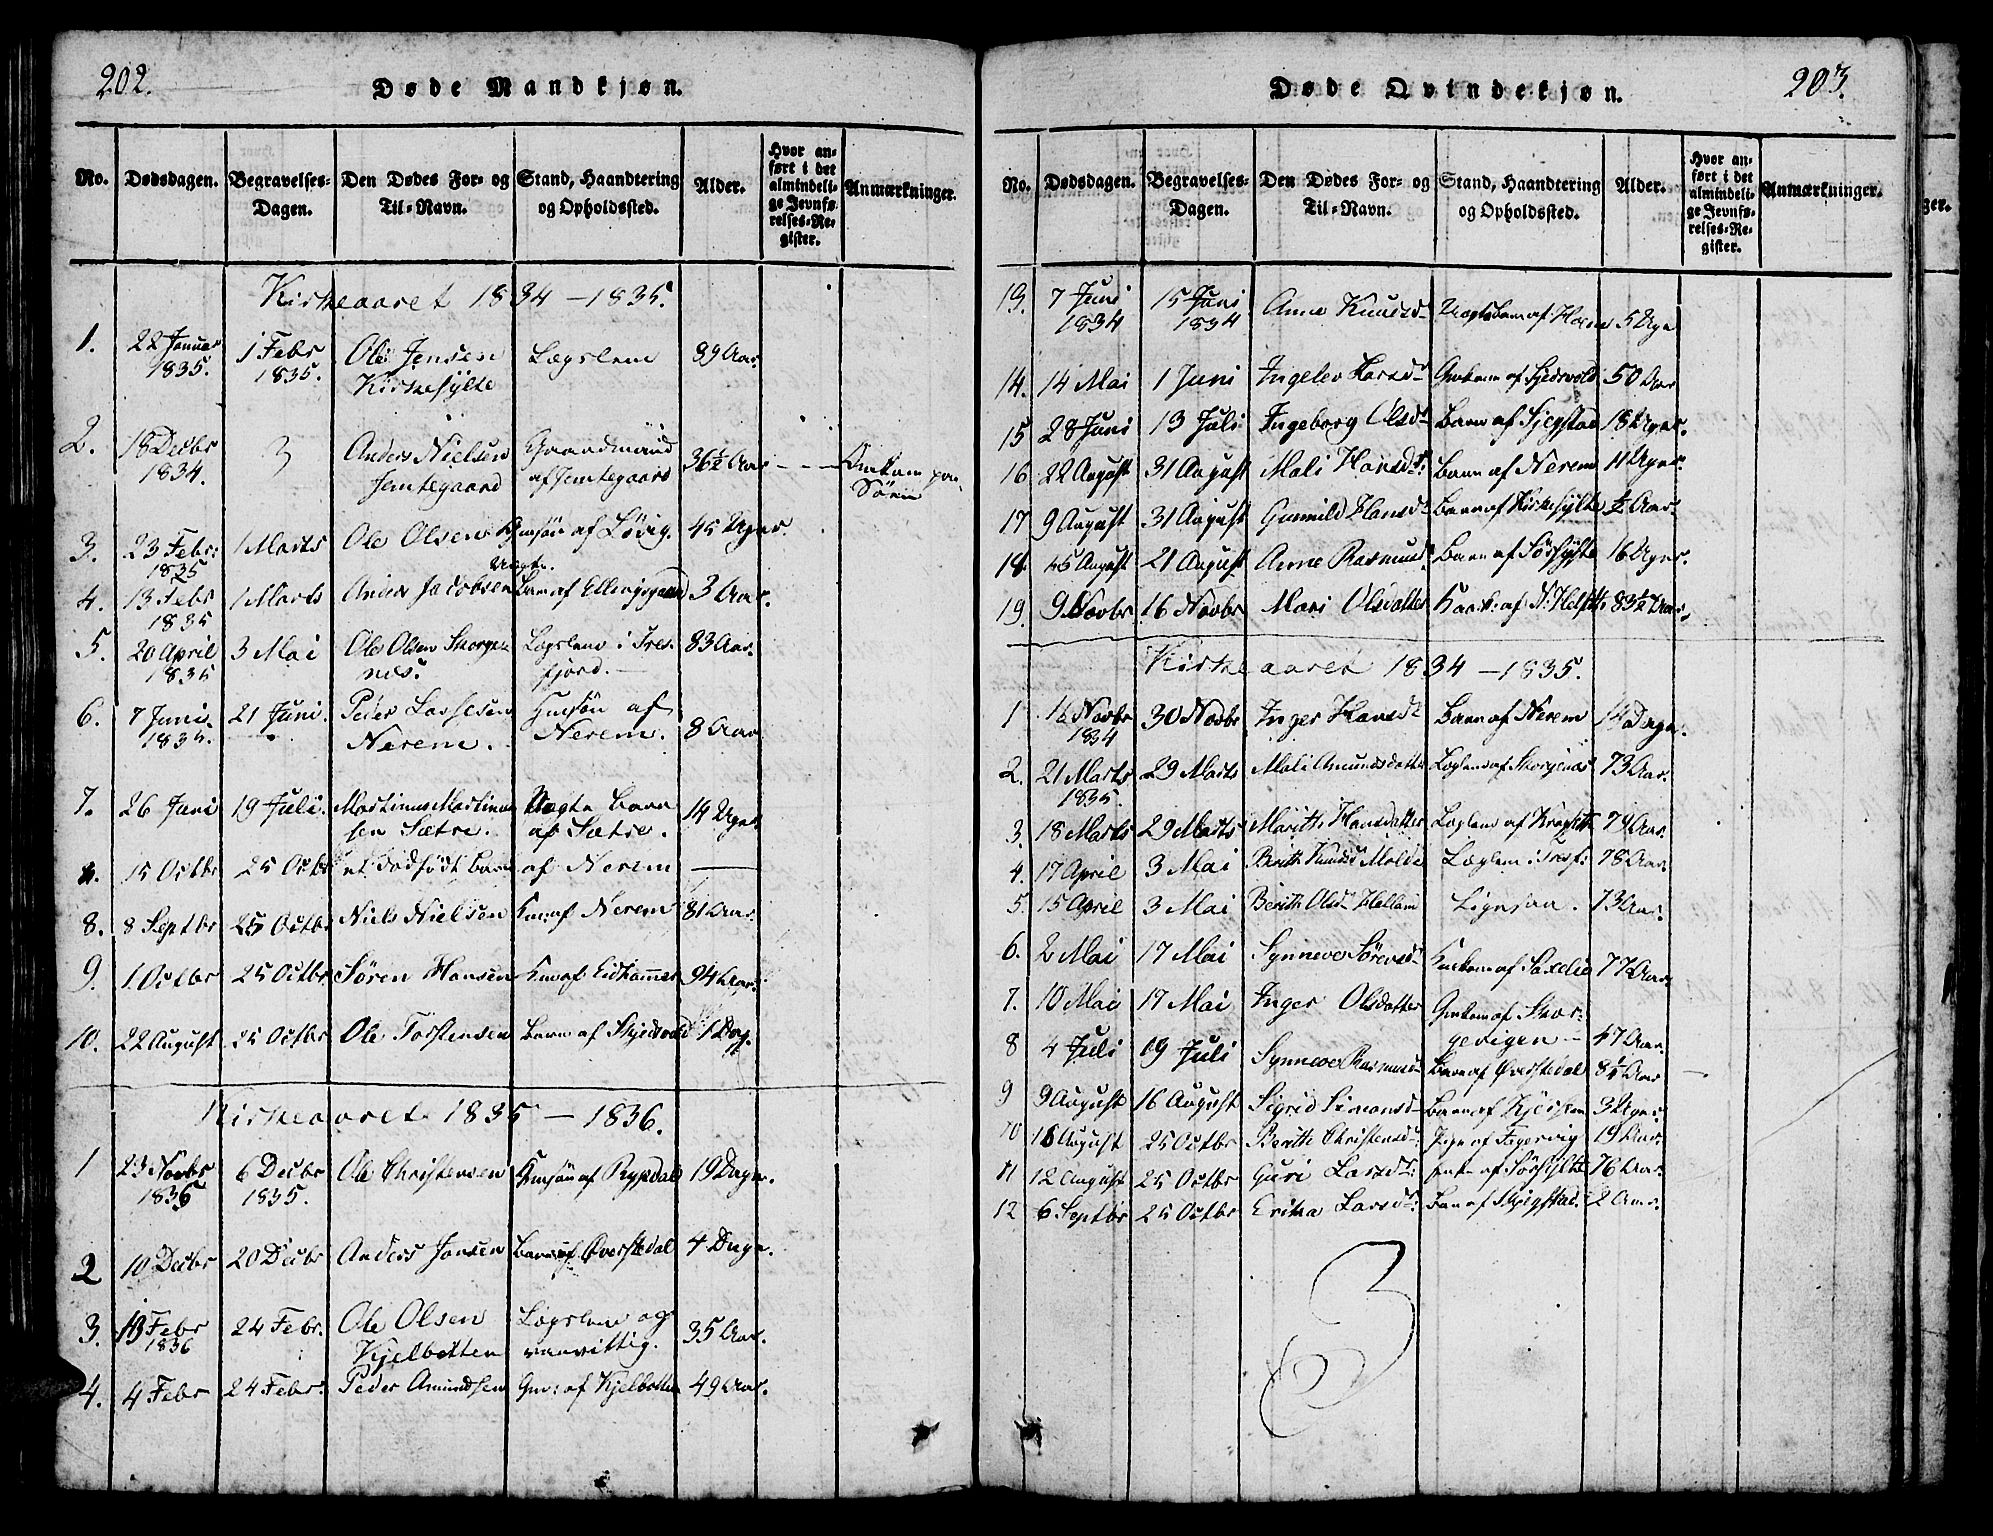 202.
Døde Mandkjøn.
No. Dødsdagen. Begravelses-Dagen. Den Dødes For- og Til-Navn. Stand, Haandtering og Opholdssted. Alder. Hvor anført i det almindelige Jevnførelses-Register. Anmærkninger.
Kirkeaaret 1834 – 1835.
1. 22 Januar 1835. 1 Febr 1835. Ole Jensen Kirkesylte Lægslem 89 Aar.
2. 18 Decbr 1834. Anders Nielsen Jemtegaard Gaardmand af Jemtegaard 36½ Aar Omkom paa Søen
3. 23 Febr: 1835 1 Marts Ole Olsen Huusøn af Løvig. 45 Uger.
4. 13 Febr 1835 1 Marts Anders Jacobsen Uægte Barn af Ellingsgaard 3 Aar.
5. 20 April 1835 3 Mai Ole Olsen Skorgenes. Lægslem i Tresfjord. 83 Aar.
6. 7 Juni. 1835. 21 Juni. Peder Lassesen Nerem. Huusøn af Nerem. 8 Aar
7. 26 Juni 19 Juli. Martinus Martinussen Sætre. Uægte Barn af Sætre. 14 Uger
15 Octbr 25 Octbr et dødfødt Barn af Nerem —
8. 8 Septbr 25 Octbr Niels Nielsen Km: af Nerem 81 Aar.
9. 1 Octbr 25 Octbr. Søren Hansen Km af Eidhammer 94 Aar.
10. 22 August 25 Octbr Ole Torstensen Barn af Skjedsvold 1 Dag.
Kirkeaaret 1835 – 1836.
1 23 Novbr 1835 6 Decbr 1835. Ole Christensen Huusøn af Rypdal 19 Dage.
2 10 Decbr 20 Decbr Anders Jensen Barn af Øverstedal 4 Dage.
3. 13 Febr 1836 24 Febr. Ole Olsen Kjelbotten Lægslem og vanvittig. 35 Aar.
4. 4 Febr 24 Febr. Peder Amundsen Gm: af Kjelbotten 49 Aar.
203.
Døde Qvindekjøn.
No. Dødsdagen. Begravelses-Dagen. Den Dødes For- og Til-Navn. Stand, Haandtering og Opholdssted. Alder. Hvor anført i det almindelige Jevnførelses-Register. Anmærkninger.
13. 7 Juni 1834 15 Juni 1834 Anne Knudsd Uægte Barn af 5 Uger
14. 14 Mai 1 Juni Ingelev Larsd Gmkone af Skjedsvold 50 Aar
15 28 Juni 13 Juli Ingeborg Olsd Barn af Skjegstad 18 Uger.
16 22 August 31 August Mali Hansd: Barn af Nerem 11 Uger.
17 9 August 31 August Gunnild Hansd Barn af Kirkesylte ½ Aar.
18. 15 August 21 August Anne Rasmusd Barn af Sørsylte 16 Uger.
19. 9 Novbr 16 Novbr Mari Olsdatter 83½ Aar.
Kirkeaaret 1834 – 1835.
1 16 Novbr 1834 30 Novbr Inger Hansd Barn af Nerem 14 Dage.
2. 21 Marts 1835. 29 Marts Mali Amundsdatter Læglem af Skorgenes 73 Aar.
3. 18 Marts 29 Marts Marith Hansdatter Læglem af 79 Aar.
4. 17 April 3 Mai Berith Knudsd Molde Læglem i Tresf: 78 Aar.
5. 15 April 3 Mai Berith Olsd Helland Ligesaa. 73 Aar.
6. 2 Mai 17 Mai Synneve Sørensd Kaarkone af 77 Aar.
7. 10 Mai 17 Mai Inger Olsdatter Gmkone af Skorgevigen 47 Aar.
8 4 Juli 19 Juli Synneve Rasmusd Barn af Øverstedal 8½ Aar
9 9 August 16 August Sigrid Simonsd Barn af 3 Uger
10 16 August 25 Octbr Berithe Christensd Pige af 19 Aar.
11 12 August 25 Octbr Guri Larsd: af Sørsylte 76 Aar.
12 6 Septbr 25 Octbr Erika Larsd: Barn af Skjegstad. 2 Aar.